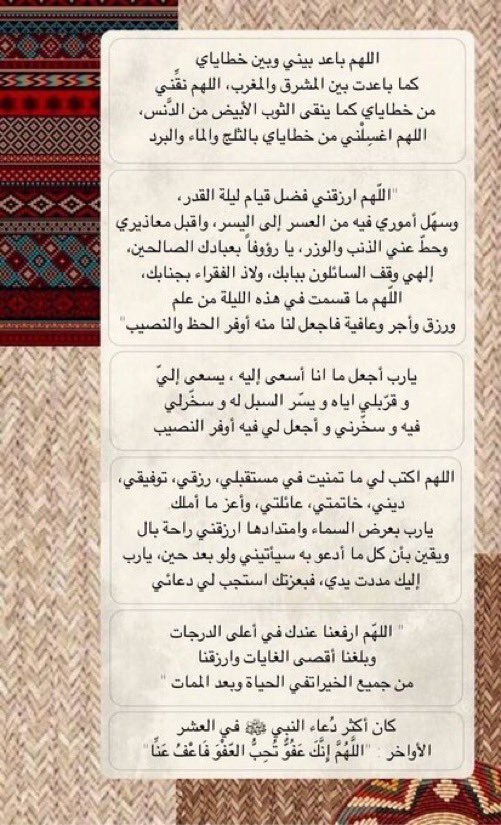 اللهم باعد بيني وبين خطاياي
كما باعدت بين المشرق والمغرب، اللهم نقِّني
من خطاياي كما ينقى الثوب الأبيض من الدَّنس،
اللهم اغسِلْني من خطاياي بالثلج والماء والبرد
"اللّهم ارزقني فضل قيام ليلة القدر،
وسهّل أموري فيه من العسر إلى اليسر، واقبل معاذيري
وحطّ عني الذنب والوزر، يا رؤوفاً بعبادك الصالحين،
إلهي وقف السائلون ببابك، ولاذ الفقراء بجنابك،
اللّهم ما قسمت في هذه الليلة من علم
ورزق وأجر وعافية فاجعل لنا منه أوفر الحظ والنصيب"
يارب أجعل ما انا أسعى إليه ، يسعى إليّ
و قرّبلي اياه و يسّر السبل له و سخّرلي
فيه و سخّرني و أجعل لي فيه أوفر النصيب
اللهم اكتب لي ما تمنيت في مستقبلي، رزقي، توفيقي،
ديني، خاتمتي، عائلتي، وأعز ما أملك
يارب بعرض السماء وامتدادها ارزقني راحة بال
ويقين بأن كل ما أدعو به سيأتيني ولو بعد حين، يارب
إليك مددت يدي، فبعزتك استجب لي دعائي
" اللهّم ارفعنا عندك في أعلى الدرجات
وبلغنا أقصى الغايات وارزقنا
من جميع الخيراتفي الحياة وبعد الممات "
كان أكثر دُعاء النبي ﷺ في العشر
الأواخر : "اللَّهُمَّ إِنَّكَ عَفُوٌّ تُحِبُّ العَفْوَ فَاعْفُ عَنَّا"